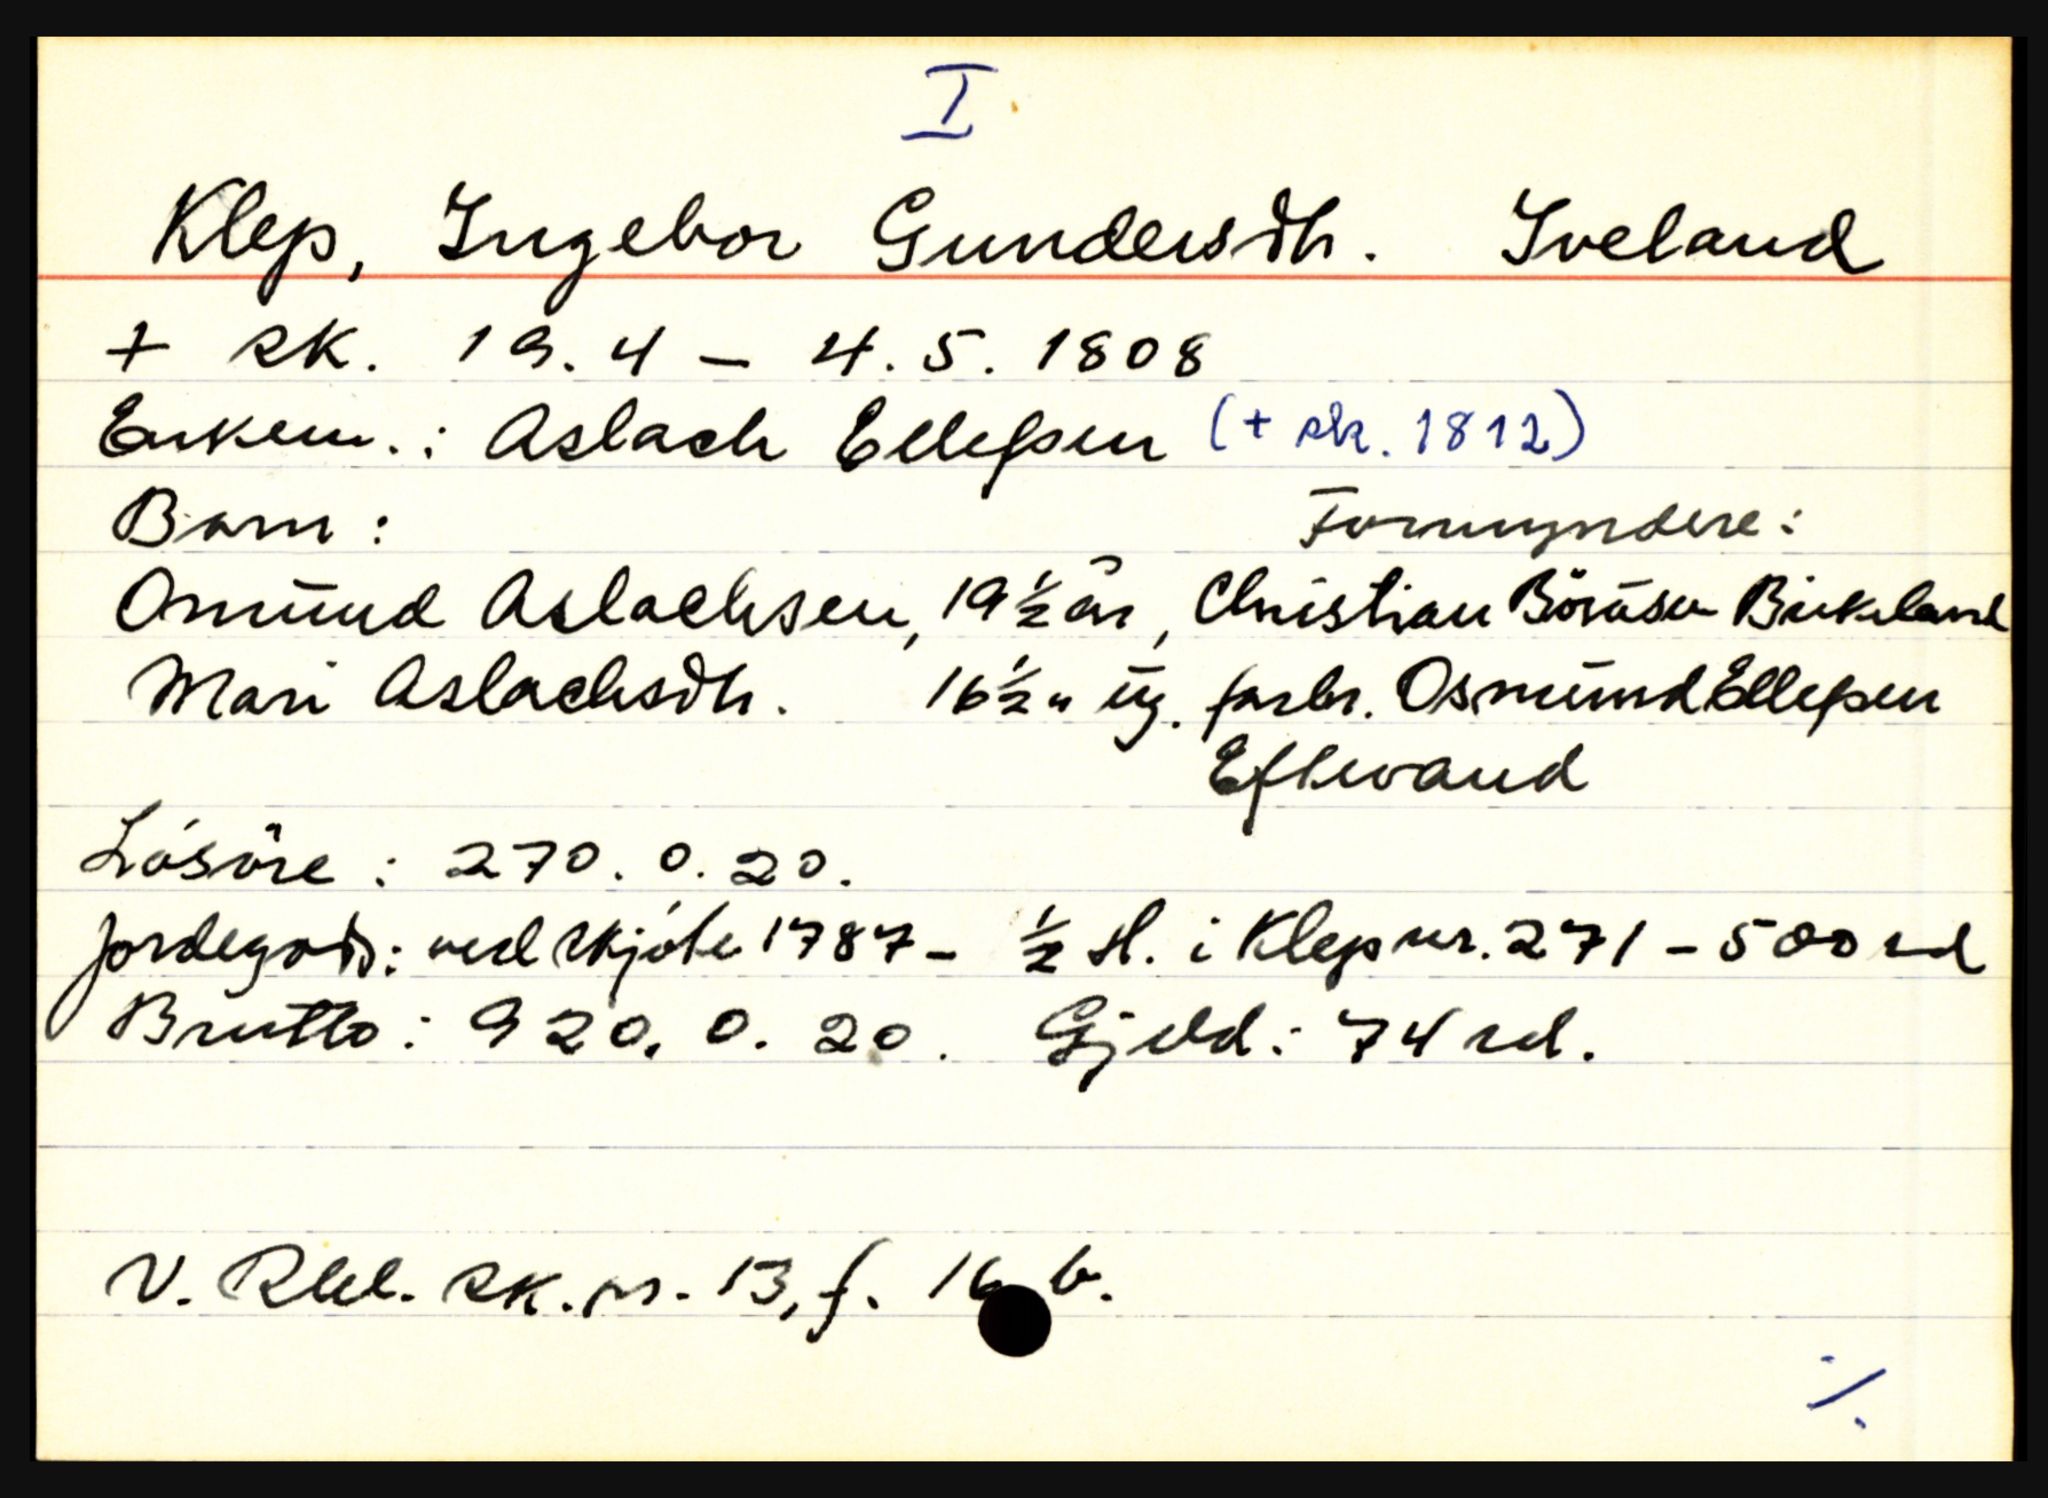 I
Klep, Ingebor Gundersdtr. Iveland
+ sk. 19.4 – 4.5. 1808
Enkem.: Aslach Elleſsen (+ sk. 1812)
Barn: Formyndere:
Omund Aslachsen, 19 ½ år, Christian Börüsen Birkeland
Mari Aslachsdtr. 16 ½ " ug. farbr. Osmund Elleſsen
Eftevand
Lösöre: 270. 0. 20.
Jordegods: ved skjöte 1787 – ½ H. i Klep nr. 271 – 500 rd
Brutto: 920. 0. 20. Gjeld: 74 rd.
V. Rbl. sk. pr. 13, f. 16 b.
./.